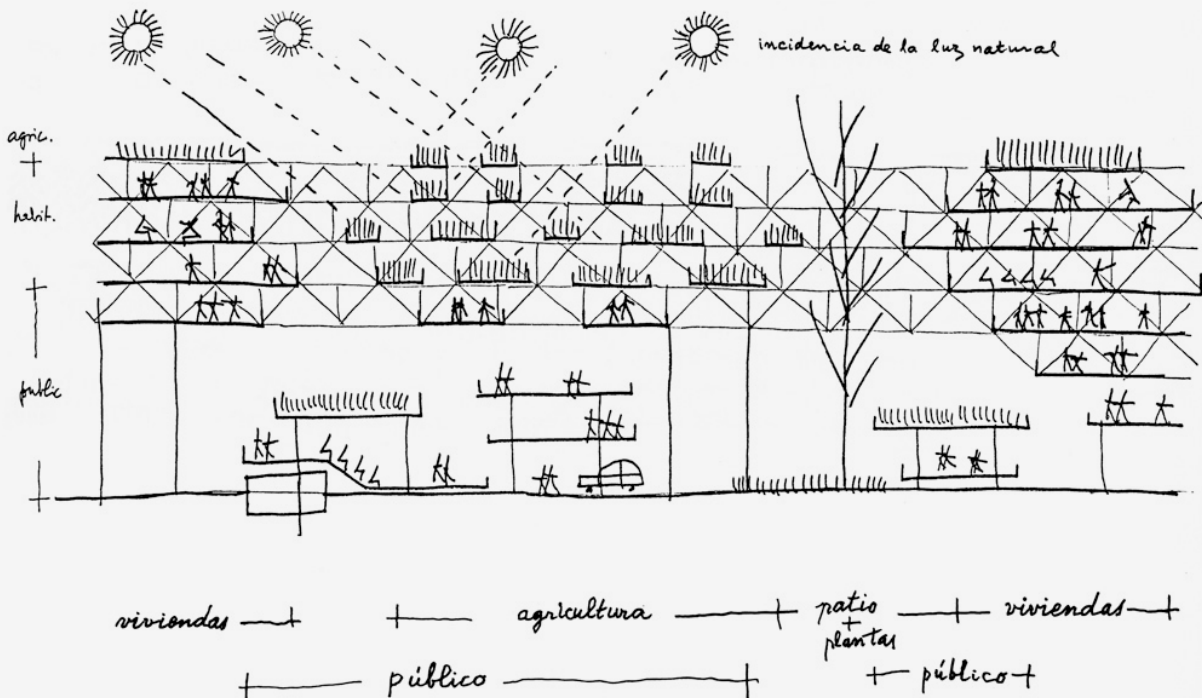 incidencia de la luz natural
agric.
habit.
public
viviendas
agricultura
patio
+
plantas
viviendas
público
público